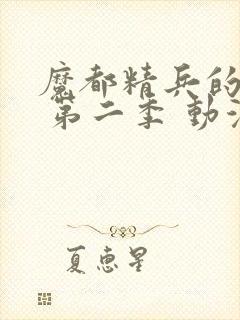 魔都精兵的
第二季 動
夏惠星